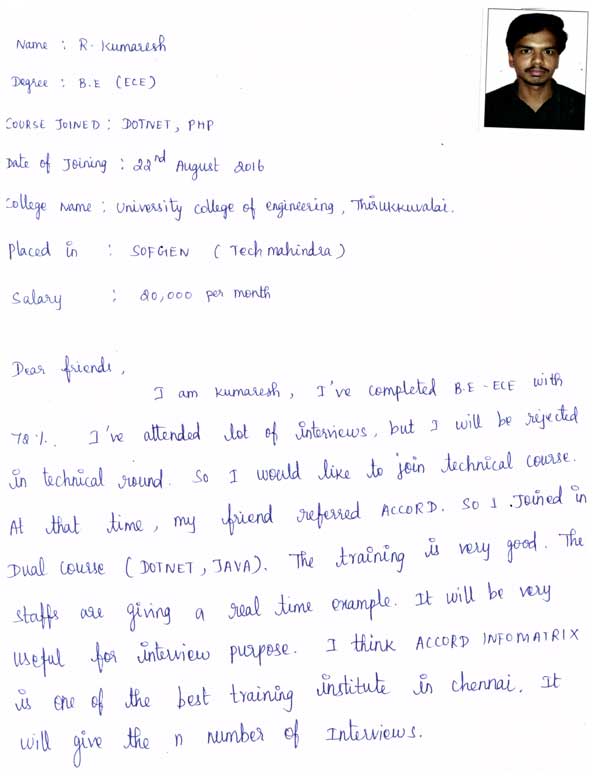 Name : R. Kumaresh
Degree : B.E (ECE)
COURSE JOINED : DOTNET, PHP
Date of Joining : 22nd August 2016
College Name : University college of engineering, Thirukkuvalai.
Placed in : SOFGEN (Tech mahindra)
Salary : 20,000 per month
Dear friends,
I am kumaresh, I've completed B.E-ECE with
78%. I've attended lot of interviews, but I will be rejected
in technical round. So I would like to join technical course.
At that time, my friend referred ACCORD. So I joined in
Dual course (DOTNET, JAVA). The training is very good. The
staffs are giving a real time example. It will be very
useful for interview purpose. I think ACCORD INFOMATRIX
is one of the best training institute in chennai. It
will give the n number of Interviews.